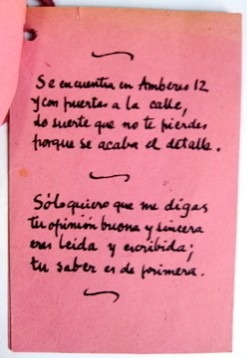 Se encuentra en Amberes 12
y con puertas a la calle,
de suerte que no te pierdes
porque se acaba el detalle.
Sólo quiero que me digas
tu opinión buena y sincera
eres leída y escribida;
tu saber es de primera.